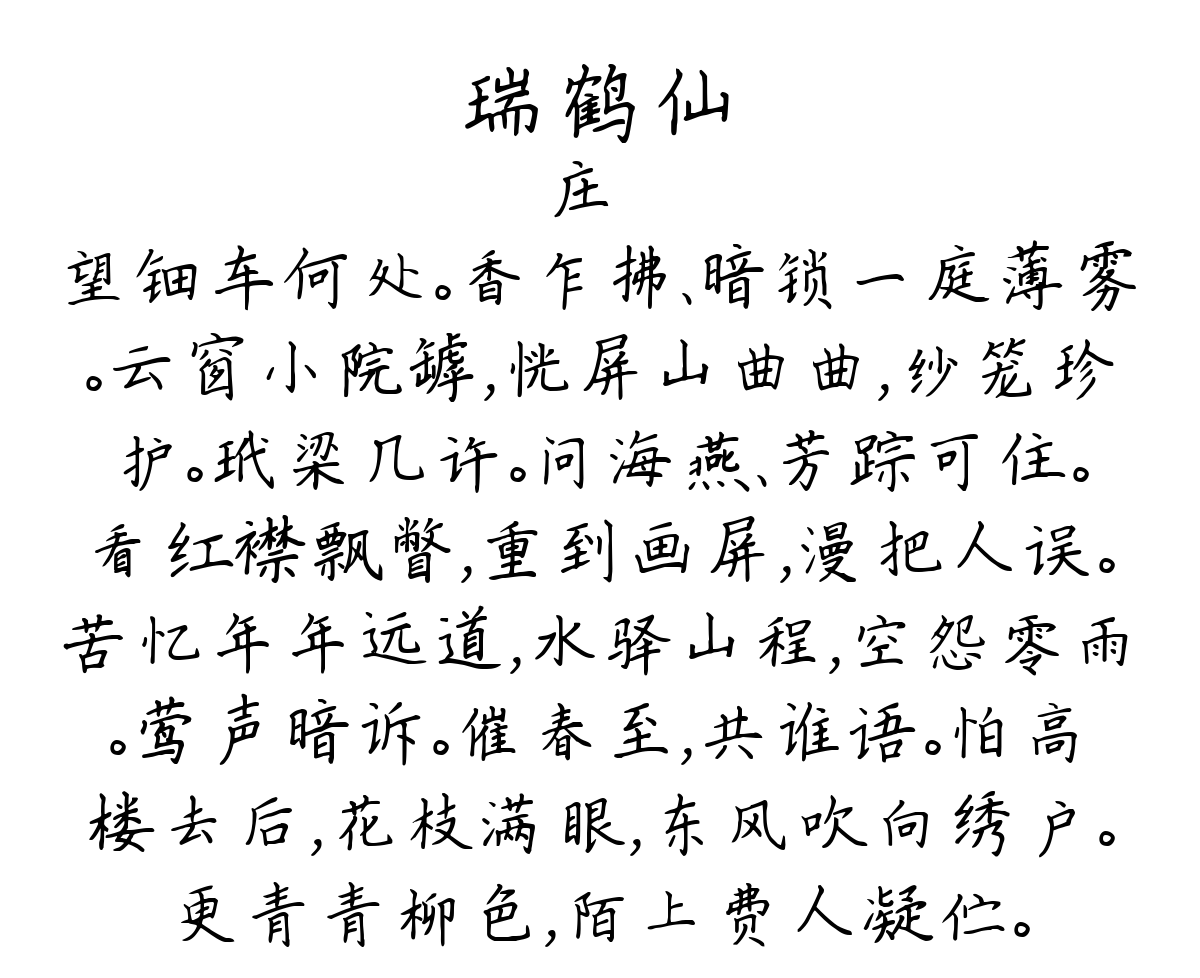 瑞鹤仙
庄
望钿车何处。香乍拂、暗锁一庭薄雾
。云窗小院罅,恍屏山曲曲,纱笼珍
护。玳梁几许。问海燕、芳踪可住。
看红襟飘瞥,重到画屏,漫把人误。
苦忆年年远道,水驿山程,空怨零雨
。莺声暗诉。催春至,共谁语。怕高
楼去后,花枝满眼,东风吹向绣户。
更青青柳色,陌上费人凝伫。